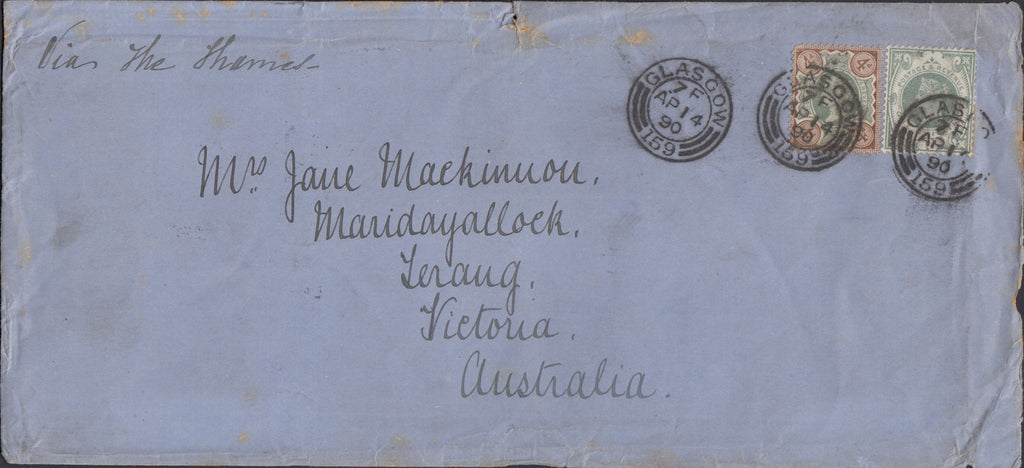 Via The Thames
Mrs Jane Mackinnon.
Maridayallock.
Terang.
Victoria.
Australia.
GLASGOW
7 F
AP 14
90
159
4 4
GLASGOW
7 F
AP 14
90
159
GLASG
7 F
AP 1
90
159